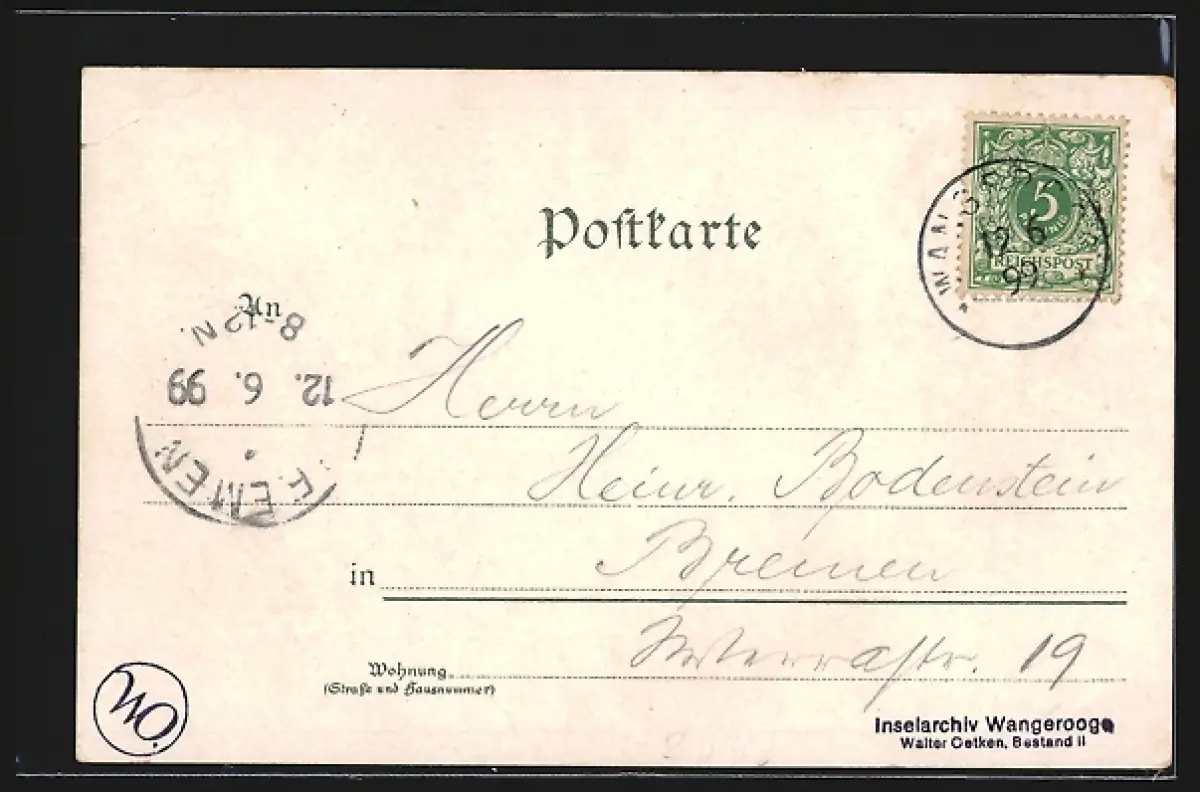 Postkarte
5
REICHSPOST
WANGEROOG
12 6
99
An
8-12 N.
12. 6. 99
BREMEN
Herrn
Heinr. Bodenstein
in Bremen
Wohnung
(Straße und Hausnummer)
19
WO.
Inselarchiv Wangerooge
Walter Oetken, Bestand II